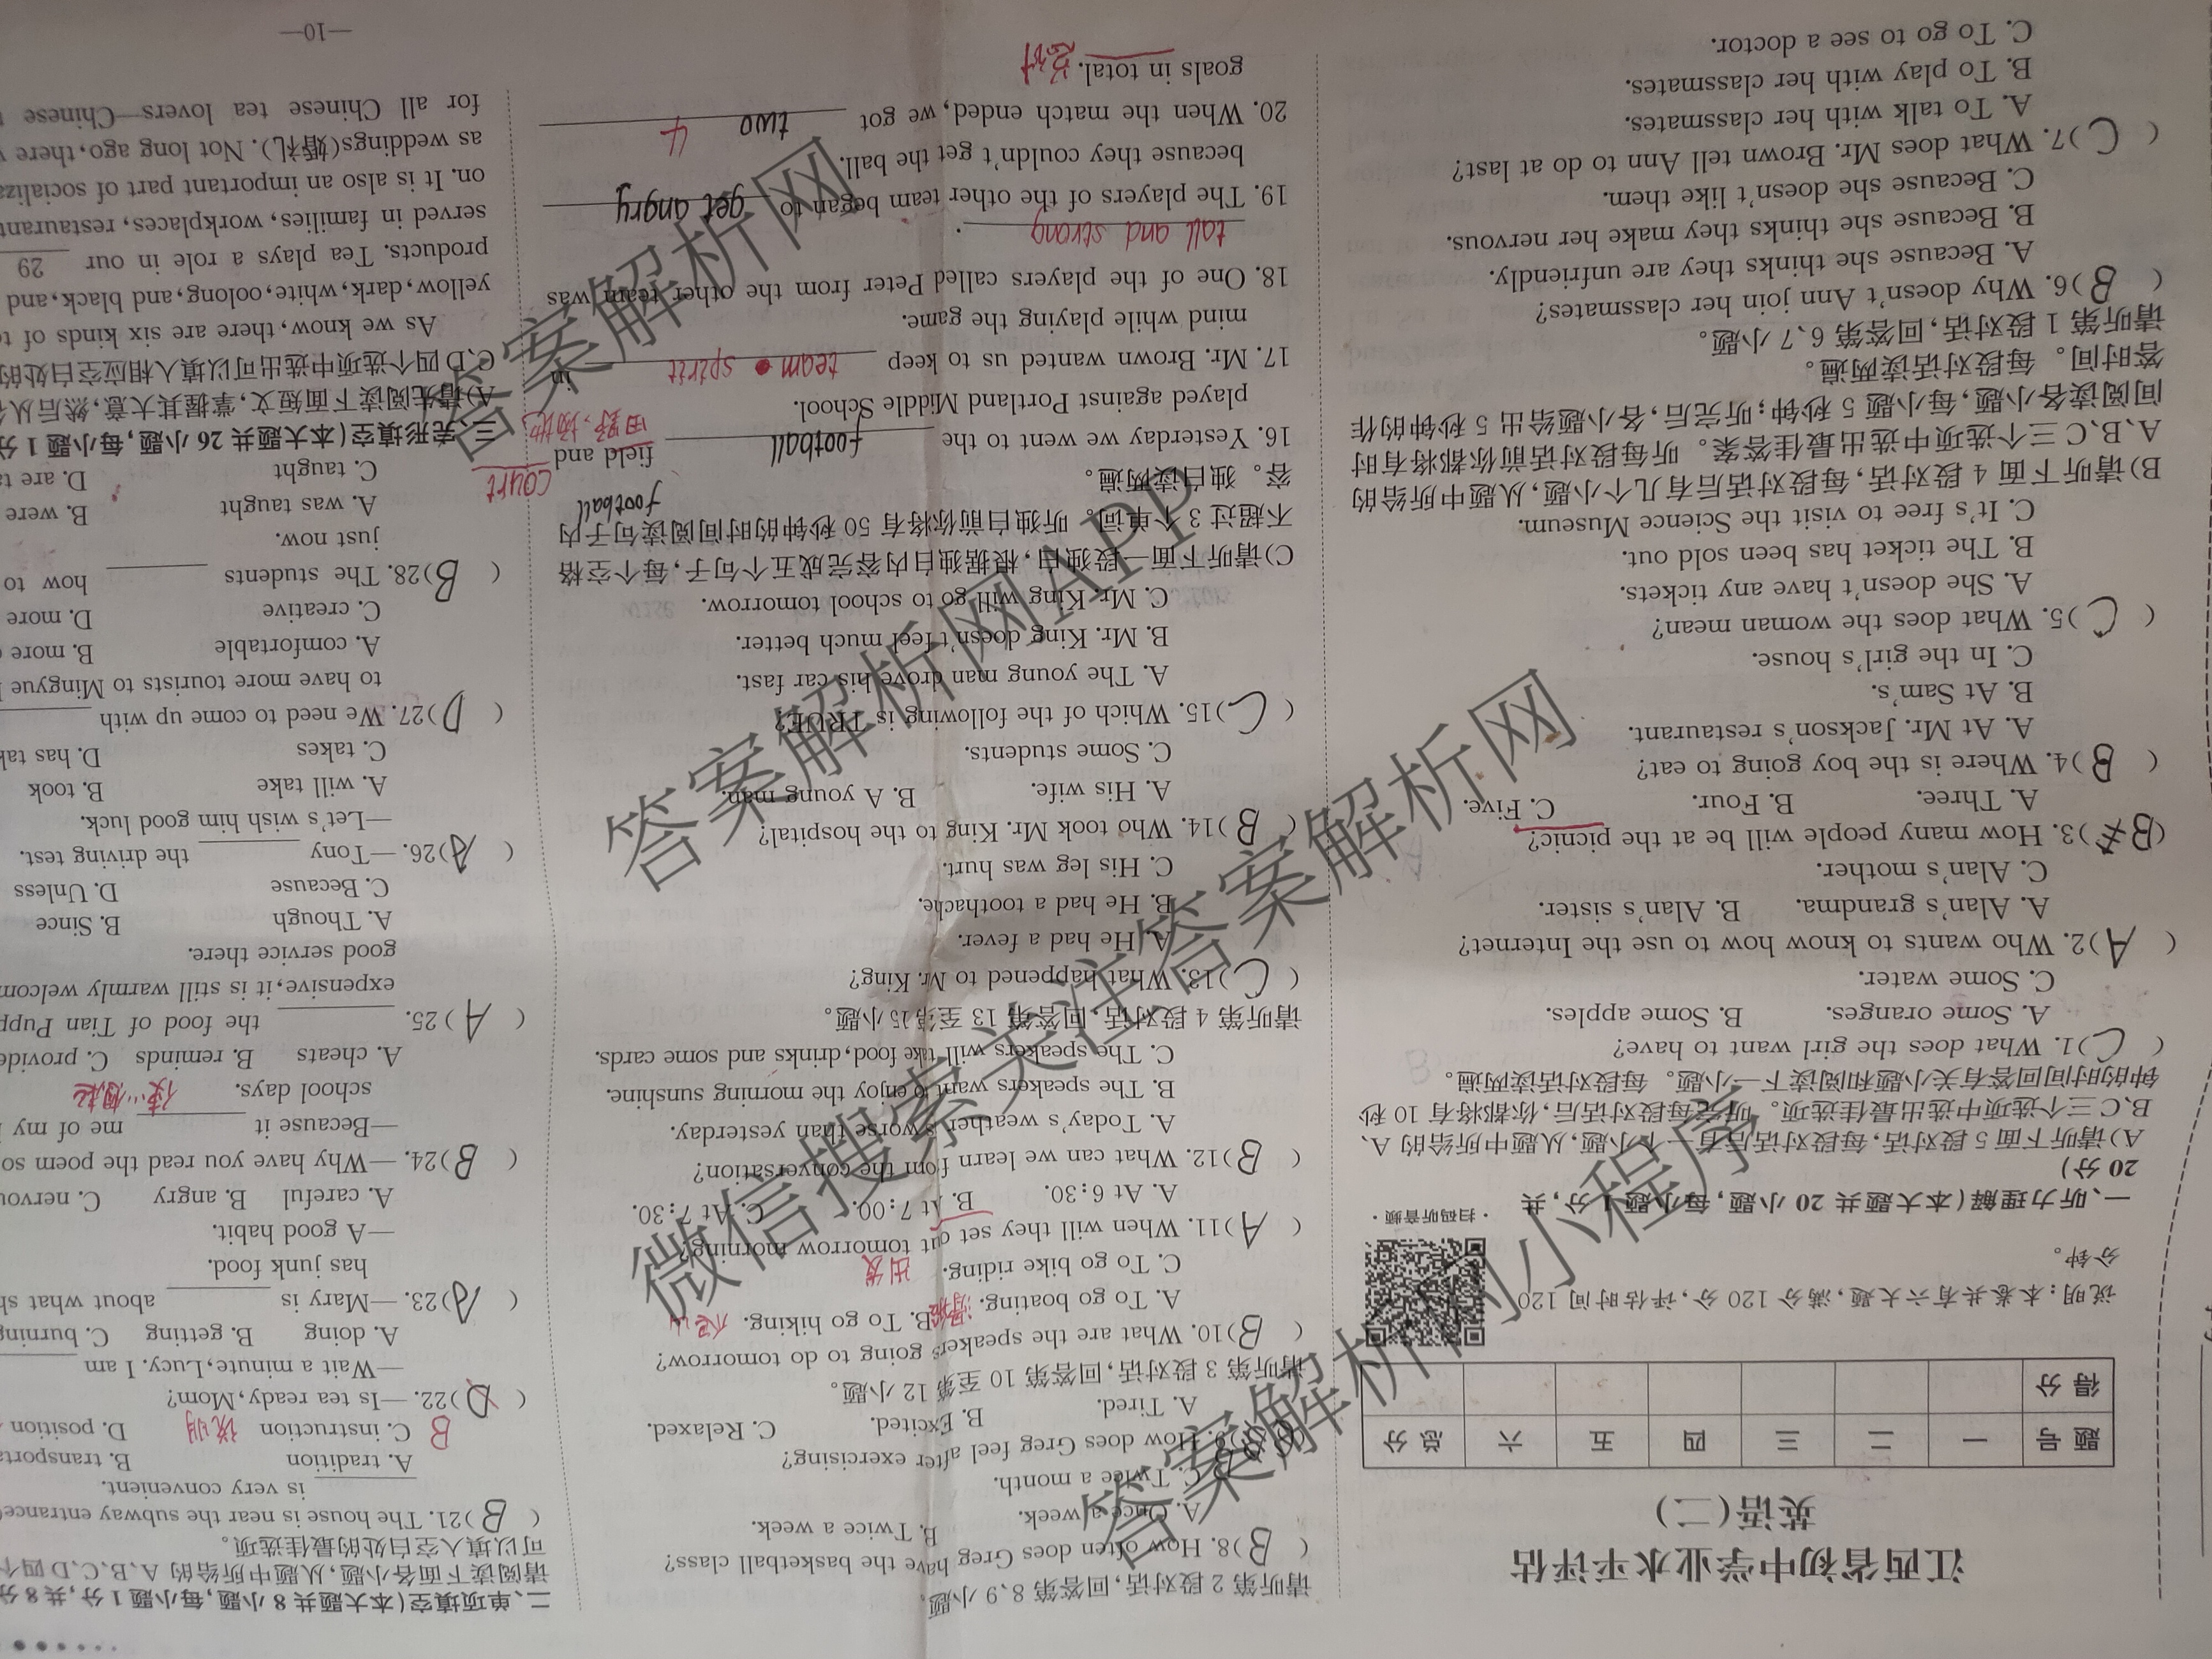 江西省初中学业水平评估
英语(二)
题号 一 二 三 四 五 六 总分
得分
说明:本卷共有六大题,满分 120 分,评估时间 120
分钟。
一、听力理解(本大题共 20 小题,每小题 1 分,共
20 分)
·扫码听音频·
A)请听下面 5 段对话,每段对话后有一个小题,从题中所给的 A、
B、C 三个选项中选出最佳选项。听完每段对话后,你都将有 10 秒
钟的时间回答有关小题和阅读下一小题。每段对话读两遍。
( C )1. What does the girl want to have?
A. Some oranges. B. Some apples.
C. Some water.
( A )2. Who wants to know how to use the Internet?
A. Alan's grandma. B. Alan's sister.
C. Alan's mother.
( B )3. How many people will be at the picnic?
A. Three. B. Four. C. Five.
( B )4. Where is the boy going to eat?
A. At Mr. Jackson's restaurant.
B. At Sam's.
C. In the girl's house.
( C )5. What does the woman mean?
A. She doesn't have any tickets.
B. The ticket has been sold out.
C. It's free to visit the Science Museum.
B)请听下面 4 段对话,每段对话后有几个小题,从题中所给的
A、B、C 三个选项中选出最佳答案。听每段对话前你都将有时
间阅读各小题,每小题 5 秒钟;听完后,各小题给出 5 秒钟的作
答时间。每段对话读两遍。
请听第 1 段对话,回答第 6、7 小题。
( B )6. Why doesn't Ann join her classmates?
A. Because she thinks they are unfriendly.
B. Because she thinks they make her nervous.
C. Because she doesn't like them.
( C )7. What does Mr. Brown tell Ann to do at last?
A. To talk with her classmates.
B. To play with her classmates.
C. To go to see a doctor.
请听第 2 段对话,回答第 8、9 小题。
( B )8. How often does Greg have the basketball class?
A. Once a week. B. Twice a week.
C. Twice a month.
9. How does Greg feel after exercising?
A. Tired. B. Excited. C. Relaxed.
请听第 3 段对话,回答第 10 至第 12 小题。
( B )10. What are the speakers going to do tomorrow?
A. To go boating. B. To go hiking.
C. To go bike riding. 出发
( A )11. When will they set out tomorrow morning?
A. At 6:30. B. At 7:00. C. At 7:30.
( B )12. What can we learn from the conversation?
A. Today's weather is worse than yesterday.
B. The speakers want to enjoy the morning sunshine.
C. The speakers will take food,drinks and some cards.
请听第 4 段对话,回答第 13 至第 15 小题。
( C )13. What happened to Mr. King?
A. He had a fever.
B. He had a toothache.
C. His leg was hurt.
( B )14. Who took Mr. King to the hospital?
A. His wife. B. A young man.
C. Some students.
( C )15. Which of the following is TRUE?
A. The young man drove his car fast.
B. Mr. King doesn't feel much better.
C. Mr. King will go to school tomorrow.
C)请听下面一段独白,根据独白内容完成五个句子,每个空格
不超过 3 个单词。听独白前你将有 50 秒钟的时间阅读句子内
容。独白读两遍。 football
court
16. Yesterday we went to the football field and
田野、场地
played against Portland Middle School.
17. Mr. Brown wanted us to keep team spirit in
mind while playing the game.
18. One of the players called Peter from the other team was
tall and strong .
19. The players of the other team began to get angry
because they couldn't get the ball.
20. When the match ended,we got two 4
goals in total. 总计
二、单项填空(本大题共 8 小题,每小题 1 分,共 8 分
请阅读下面各小题,从题中所给的 A、B、C、D 四个
可以填入空白处的最佳选项。
( B )21. The house is near the subway entrance
is very convenient.
A. tradition B. transporta
B C. instruction 说明 D. position
( D )22. —Is tea ready,Mom?
—Wait a minute,Lucy. I am
A. doing B. getting C. burning
( A )23. —Mary is about what sh
has junk food.
—A good habit.
A. careful B. angry C. nervou
( B )24. —Why have you read the poem so
—Because it me of my
school days. 使…想起
A. cheats B. reminds C. provide
( A )25. the food of Tian Pupp
expensive,it is still warmly welcom
good service there.
A. Though B. Since
C. Because D. Unless
( A )26. —Tony the driving test.
—Let's wish him good luck.
A. will take B. took
C. takes D. has tak
( D )27. We need to come up with
to have more tourists to Mingyue
A. comfortable B. more
C. creative D. more
( B )28. The students how to
just now.
A. was taught B. were
C. taught D. are ta
三、完形填空(本大题共 26 小题,每小题 1 分
A)请先阅读下面短文,掌握其大意,然后从
C、D 四个选项中选出可以填入相应空白处的
As we know,there are six kinds of te
yellow,dark,white,oolong,and black,and
products. Tea plays a role in our 29
served in families,workplaces,restaurant
on. It is also an important part of socializa
as weddings(婚礼). Not long ago,there
for all Chinese tea lovers—Chinese
—10—
答案解析网
答案解析网APP
微信搜索关注答案解析网
答案解析网小程序